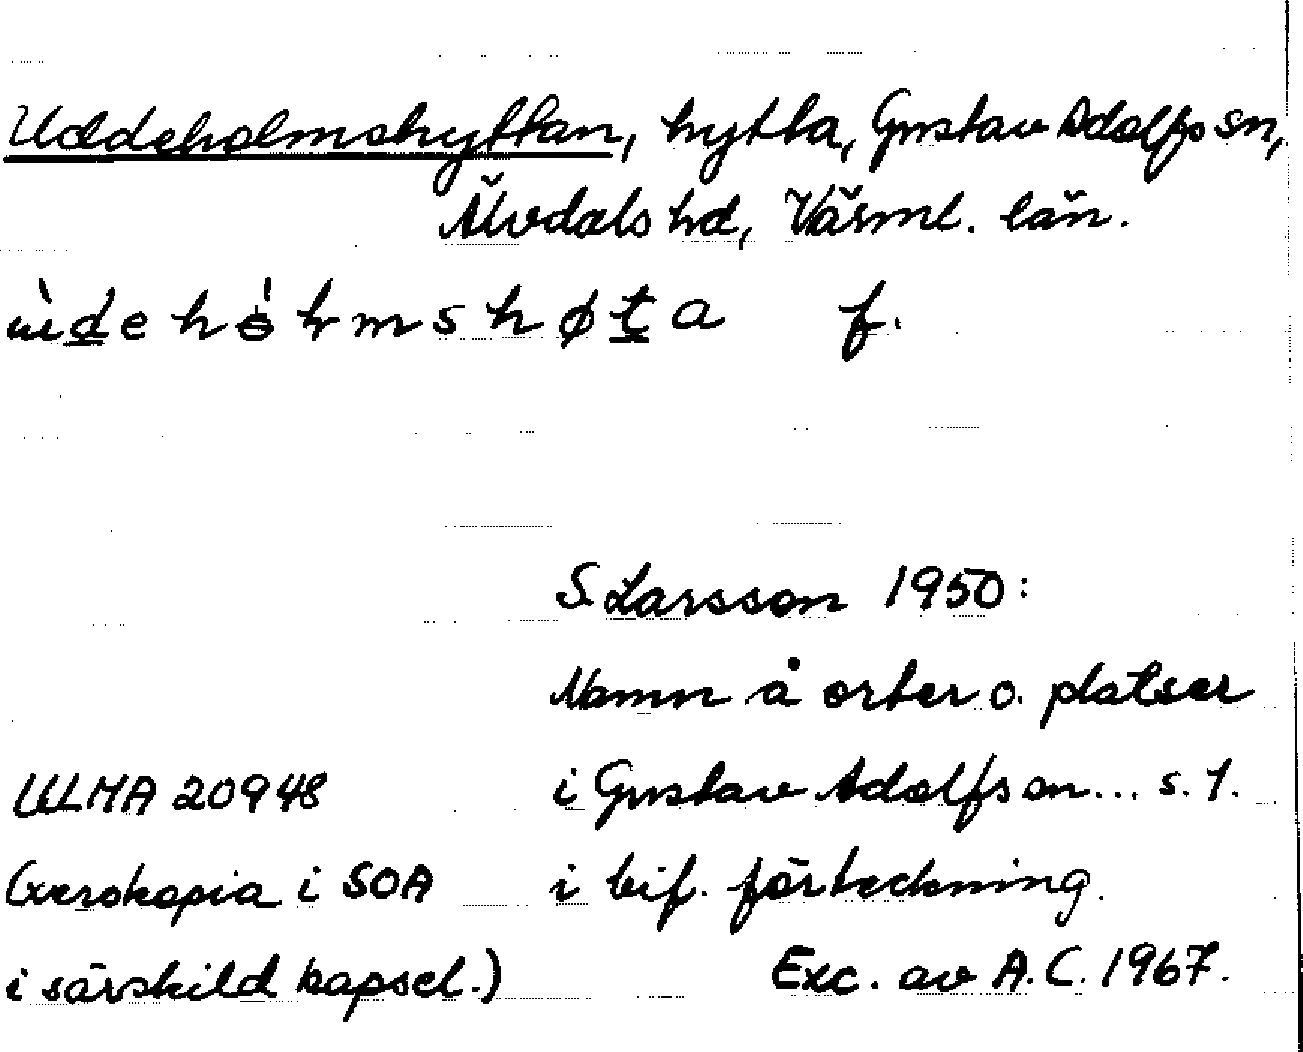 Uddeholmshyttan, hytta, Gustav Adolfs sn,
Älvdals hd, Värml. län.
f.
S. Larsson 1950:
Namn å orter o. platser
ULMA 20948 i Gustav Adolfs sn... s. 1.
(xerokopia i SOA i bif. förteckning.
i särskild kapsel.) Exc. av A.C. 1967.